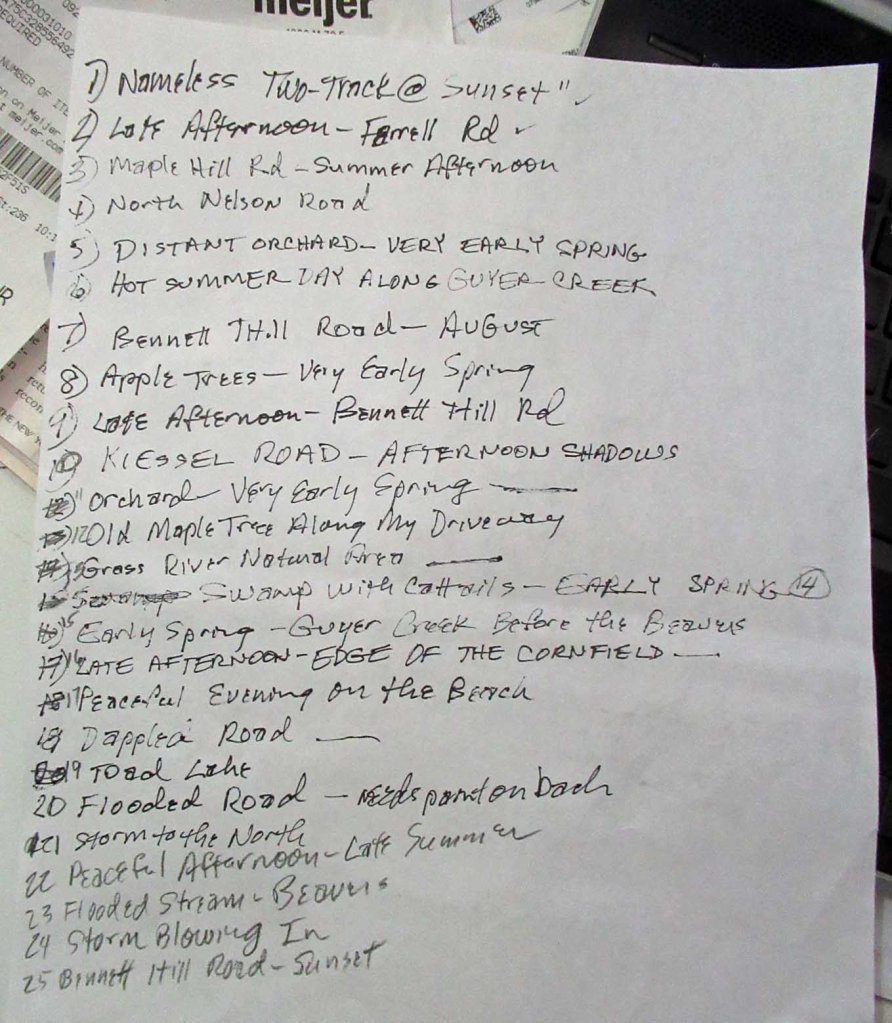 meijer
1) Nameless Two-Track @ Sunset"
2) Late Afternoon - Farrell Rd
3) Maple Hill Rd - Summer Afternoon
4) North Nelson Road
5) DISTANT ORCHARD - VERY EARLY SPRING
6) HOT SUMMER DAY ALONG GUYER CREEK
7) Bennett Hill Road - AUGUST
8) Apple Trees - Very Early Spring
9) Late Afternoon - Bennett Hill Rd
10) KIESSEL ROAD - AFTERNOON SHADOWS
11 Orchard - Very Early Spring
12 Old Maple Tree Along My Driveway
Grass River Natural Area
Swamp with Cattails - EARLY SPRING 14
15 Early Spring - Guyer Creek Before the Beavers
16 LATE AFTERNOON - EDGE OF THE CORNFIELD
17 Peaceful Evening on the Beach
18 Dappled Road
19 Toad Lake
20 Flooded Road - needs paint on back
21 Storm to the North
22 Peaceful Afternoon - Late Summer
23 Flooded Stream - Beavers
24 Storm Blowing In
25 Bennett Hill Road - Sunset